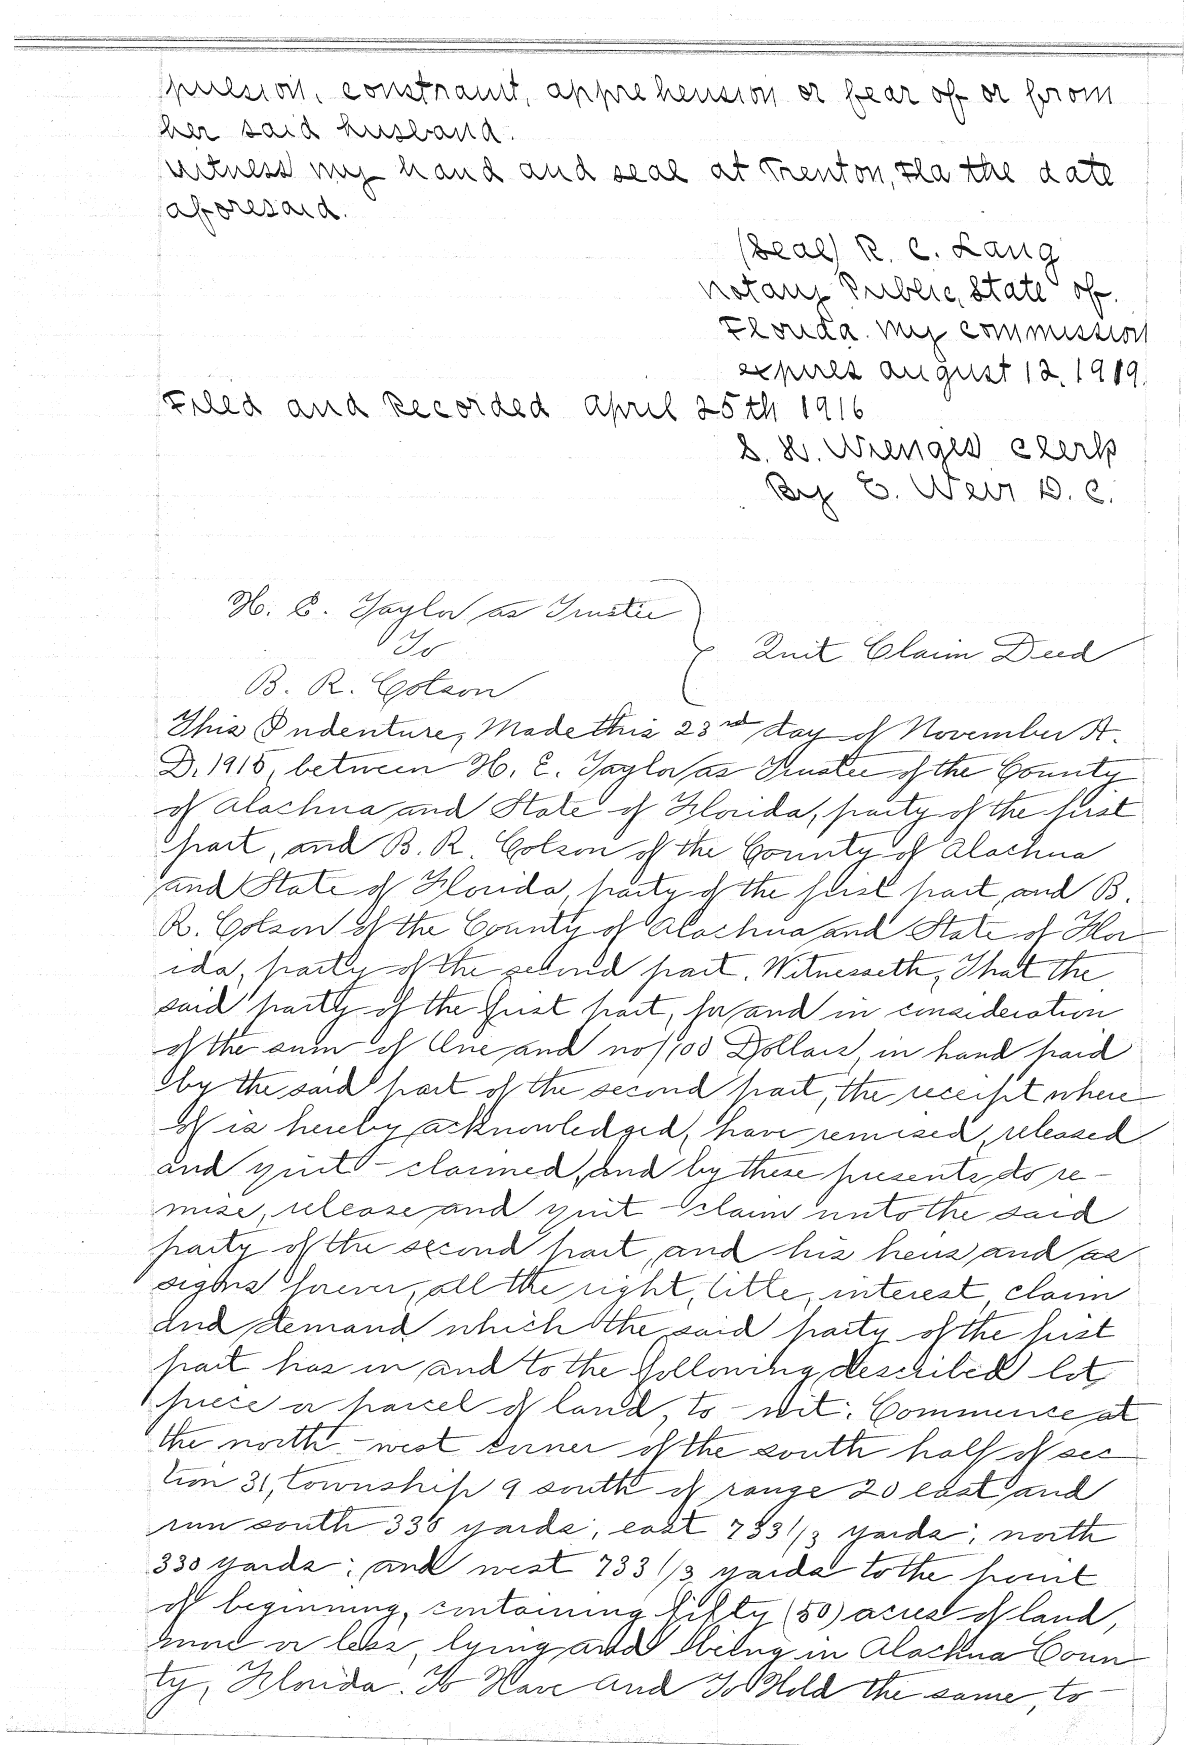 pulsion, constraint, apprehension or fear off or from
her said husband.
Witness my hand and seal at Trenton, Fla the date
aforesaid.
(Seal) R. C. Lang
Notary Public, State of
Florida. My commission
expires August 12, 1919.
Filed and Recorded April 25th 1916
S. H. Wienges Clerk
By E. Weir D. C.
H. E. Taylor as Trustee
To
Quit Claim Deed
B. R. Colson
This Indenture, Made this 23rd day of November A.
D. 1915, between H. E. Taylor as Trustee of the County
of Alachua and State of Florida, party of the first
part, and B. R. Colson of the County of Alachua
and State of Florida, party of the first part, and B.
R. Colson of the County of Alachua and State of Flor
ida, party of the second part. Witnesseth, That the
said party of the first part, for and in consideration
of the sum of One and no/100 Dollars, in hand paid
by the said part of the second part, the receipt where
of is hereby acknowledged, have remised, released
and quit-claimed, and by these presents do re-
mise, release and quit-claim unto the said
party of the second part, and his heirs and as
signs forever, all the right, title, interest, claim
and demand which the said party of the first
part has in and to the following described lot,
piece or parcel of land, to-wit: Commence at
the north-west corner of the south half of sec
tion 31, township 9 south of range 20 east and
run south 330 yards; east 733 1/3 yards; north
330 yards; and west 733 1/3 yards to the point
of beginning, containing fifty (50) acres of land,
more or less, lying and being in Alachua Coun
ty, Florida. To Have and To Hold the same, to-